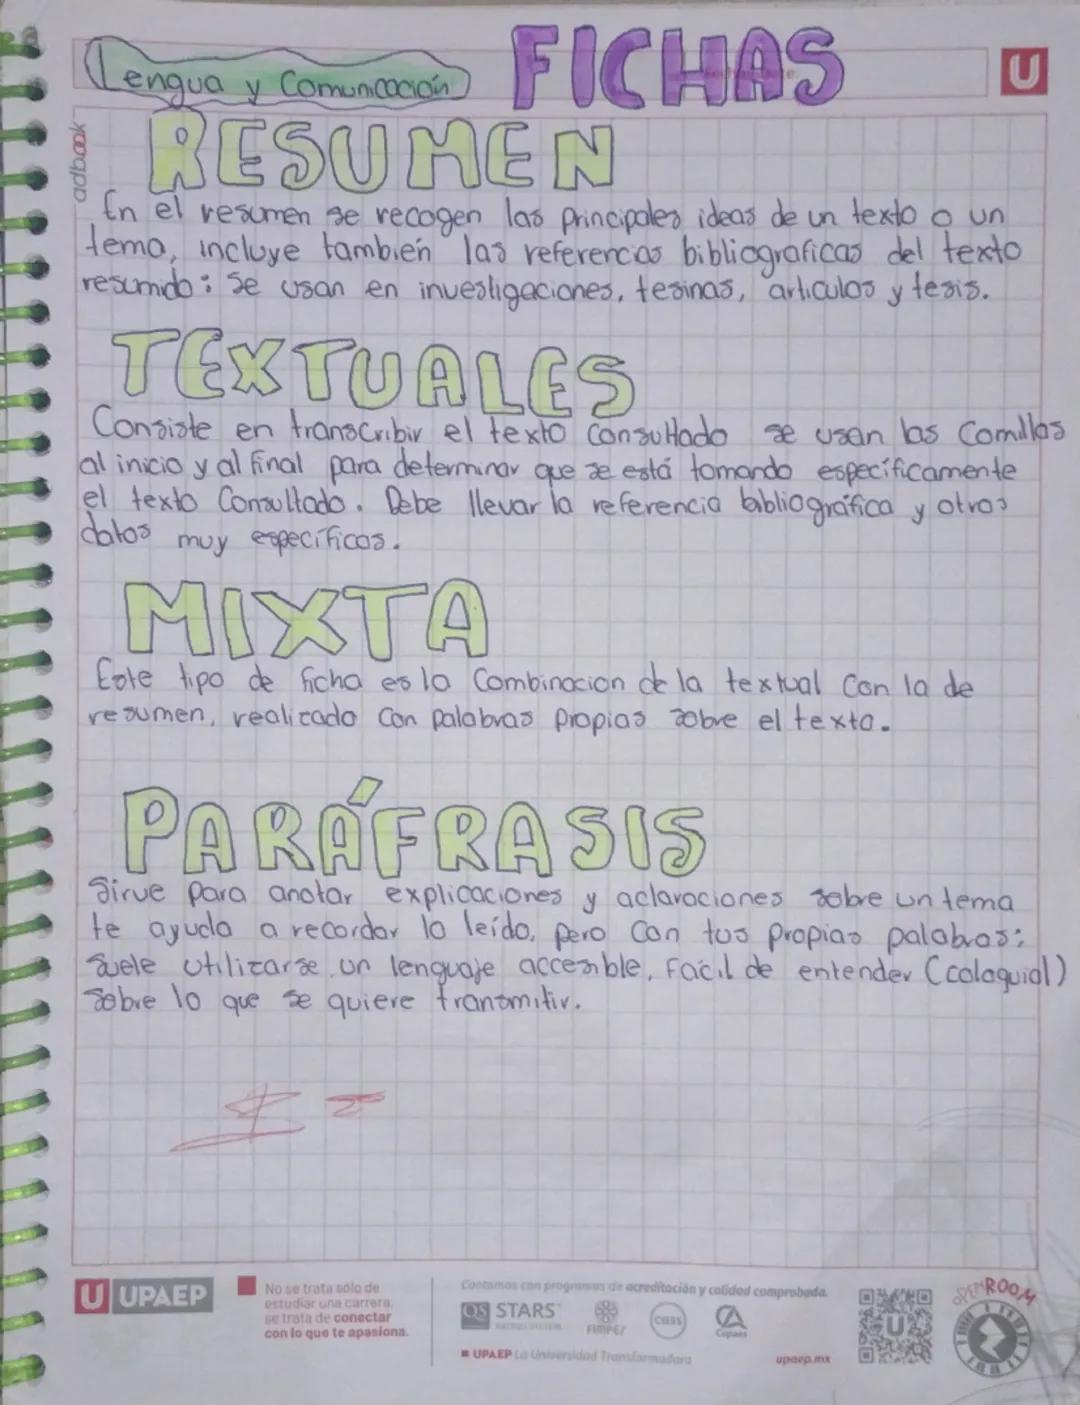 Lengua y Comunicación
FICHAS
U
adbook
RESUMEN
En el resumen se recogen las principales ideas de un texto o un
tema, incluye también las referencias bibliograficas del texto
resumido: Se usan en investigaciones, tesinas, articulos y tesis.
TEXTUALES
Consiste en transcribir el texto consultado se usan las Comillas
al inicio y al final para determinar que se está tomando específicamente
el texto Consultado. Debe llevar la referencia bibliográfica y otros
datos muy específicos.
MIXTA
Este tipo de ficha es la Combinacion de la textual Con la de
resumen, realizado Con palabras Propias sobre el texto.
PARÁFRASIS
Sirve para anotar explicaciones y aclaraciones sobre un tema
te ayuda a recordar lo leído, pero Con tus propias palabras;
Suele utilizarse un lenguaje accesible, Fácil de entender (coloquial)
Sobre lo que se quiere transmitir.
U UPAEP
No se trata sólo de
estudiar una carrera,
se trata de conectar
con lo que te apasiona.
Contamos con programas de acreditación y calidad comprobada.
QS STARS
RATING SYSTEM
FIMPES
CIEES
Copaes
UPAEP La Universidad Transformadora
upaep.mx
U
OPEN ROOM